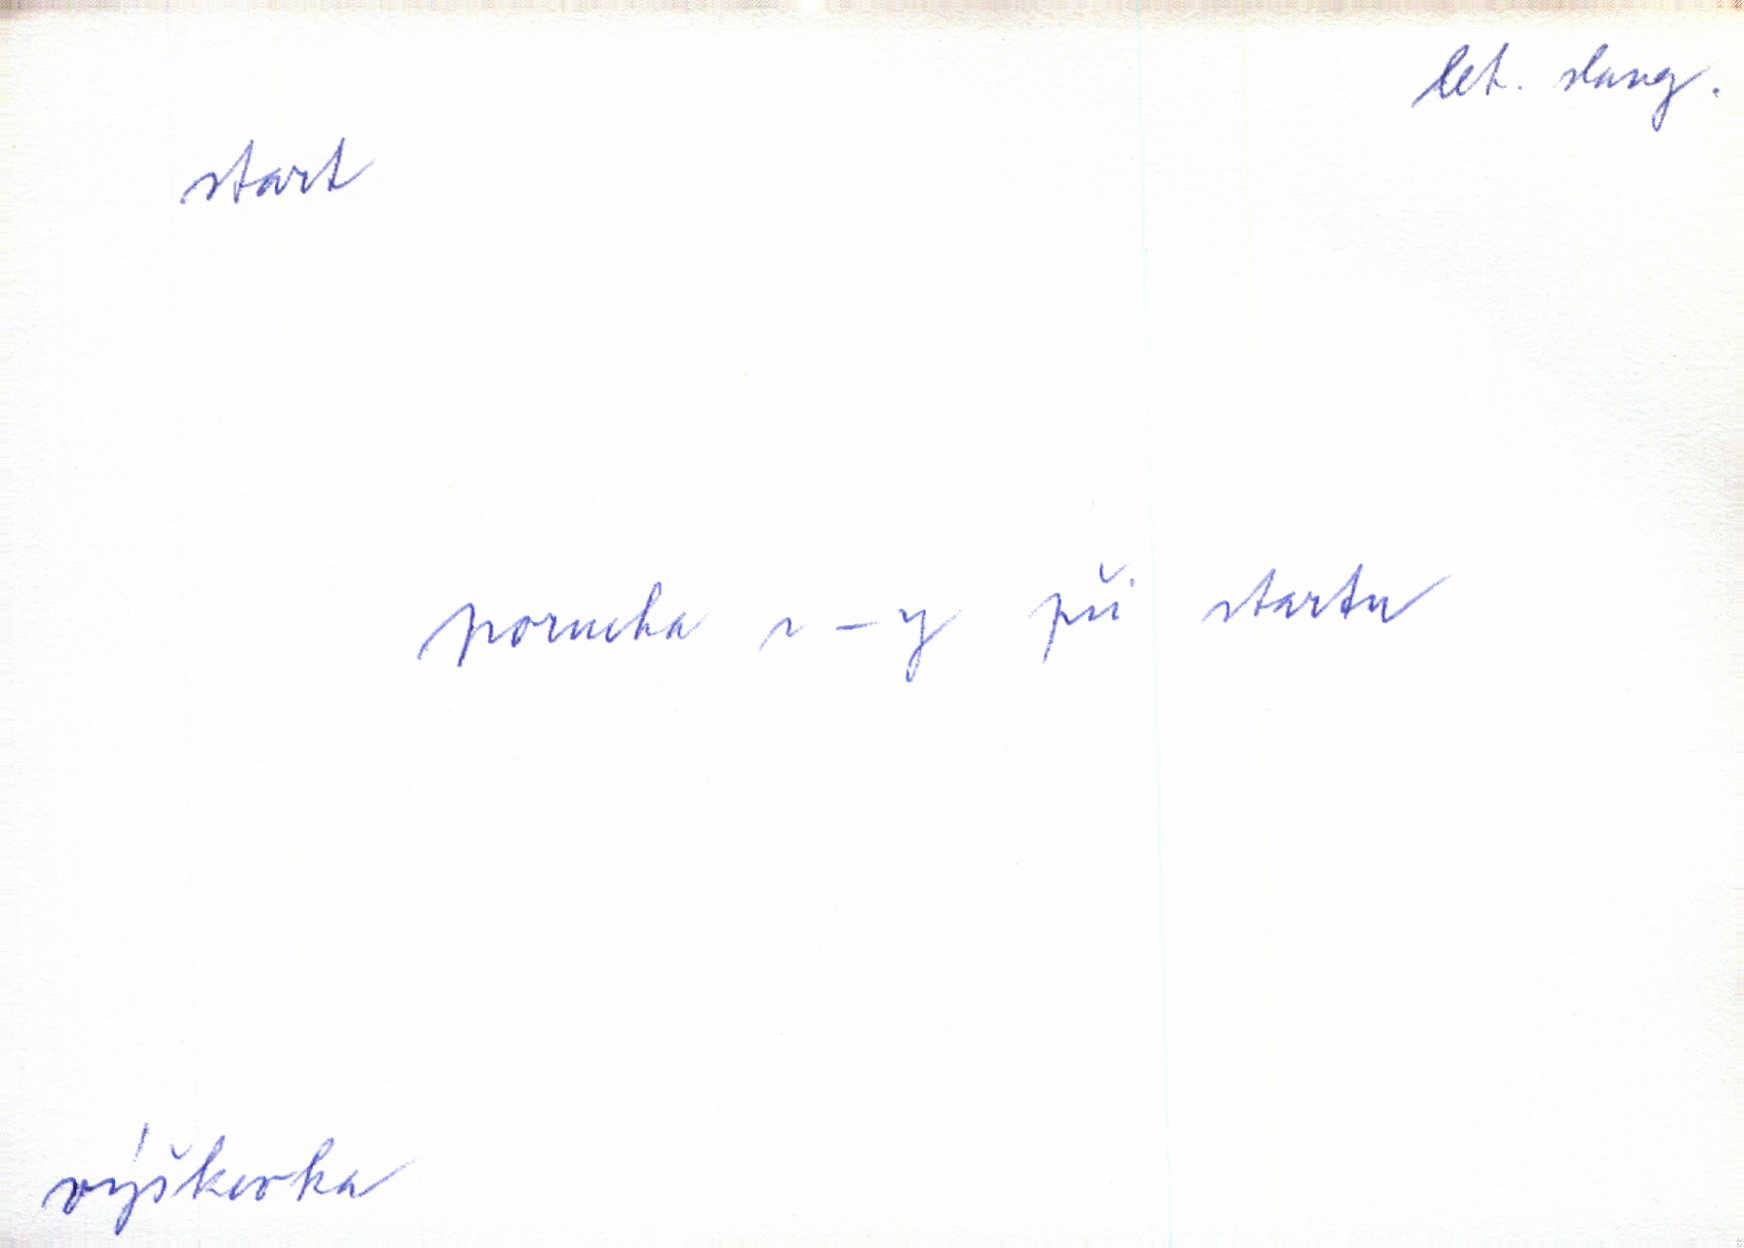 let. slang.
start
porucha v-y při startu
výškovka